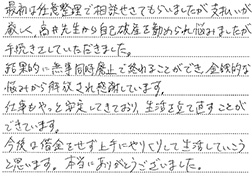 最初は任意整理で相談させてもらいましたが支払いが
厳しく、高井先生から自己破産を勧められ悩みましたが
手続きしていただきました。
結果的に無事同時廃止で終れることができ、金銭的な
悩みから解放され感謝しています。
仕事もやっと安定してきており、生活を立て直すことが
できています。
今後は借金をせず上手にやりくりして生活していこう
と思います。本当にありがとうございました。